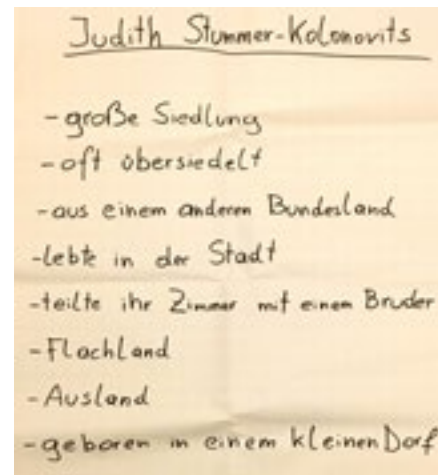 Judith Stummer-Kolonovits
- große Siedlung
- oft übersiedelt
- aus einem anderen Bundesland
- lebte in der Stadt
- teilte ihr Zimmer mit einem Bruder
- Flachland
- Ausland
- geboren in einem kleinen Dorf